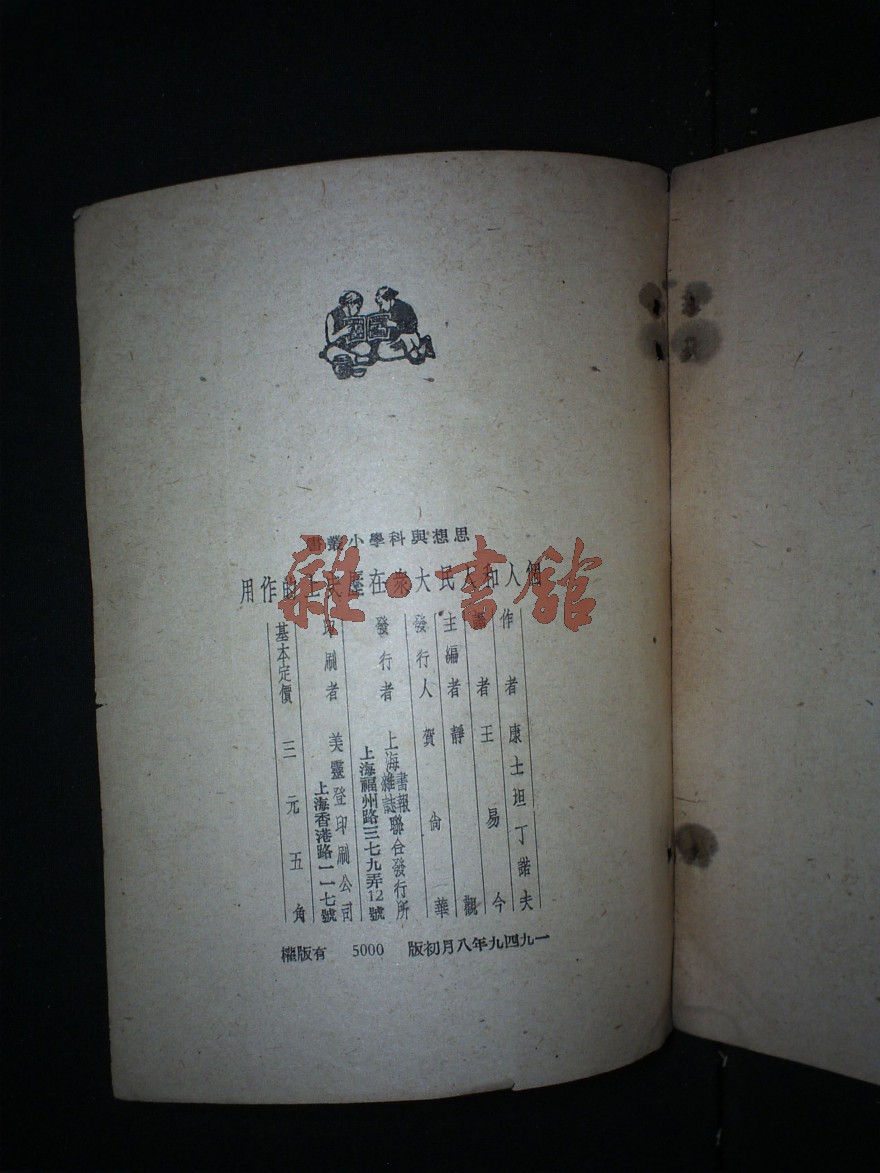 思想與科學小叢書
個人和人民大衆在歷史上的作用
作者 康士坦丁諾夫
譯者 王易今
主編者 靜觀
發行人 賀尙華
發行者 上海書報雜誌聯合發行所
上海福州路三七九弄12號
印刷者 美靈登印刷公司
上海香港路一一七號
基本定價 三元五角
一九四九年八月初版 5000 有版權
雜·書館